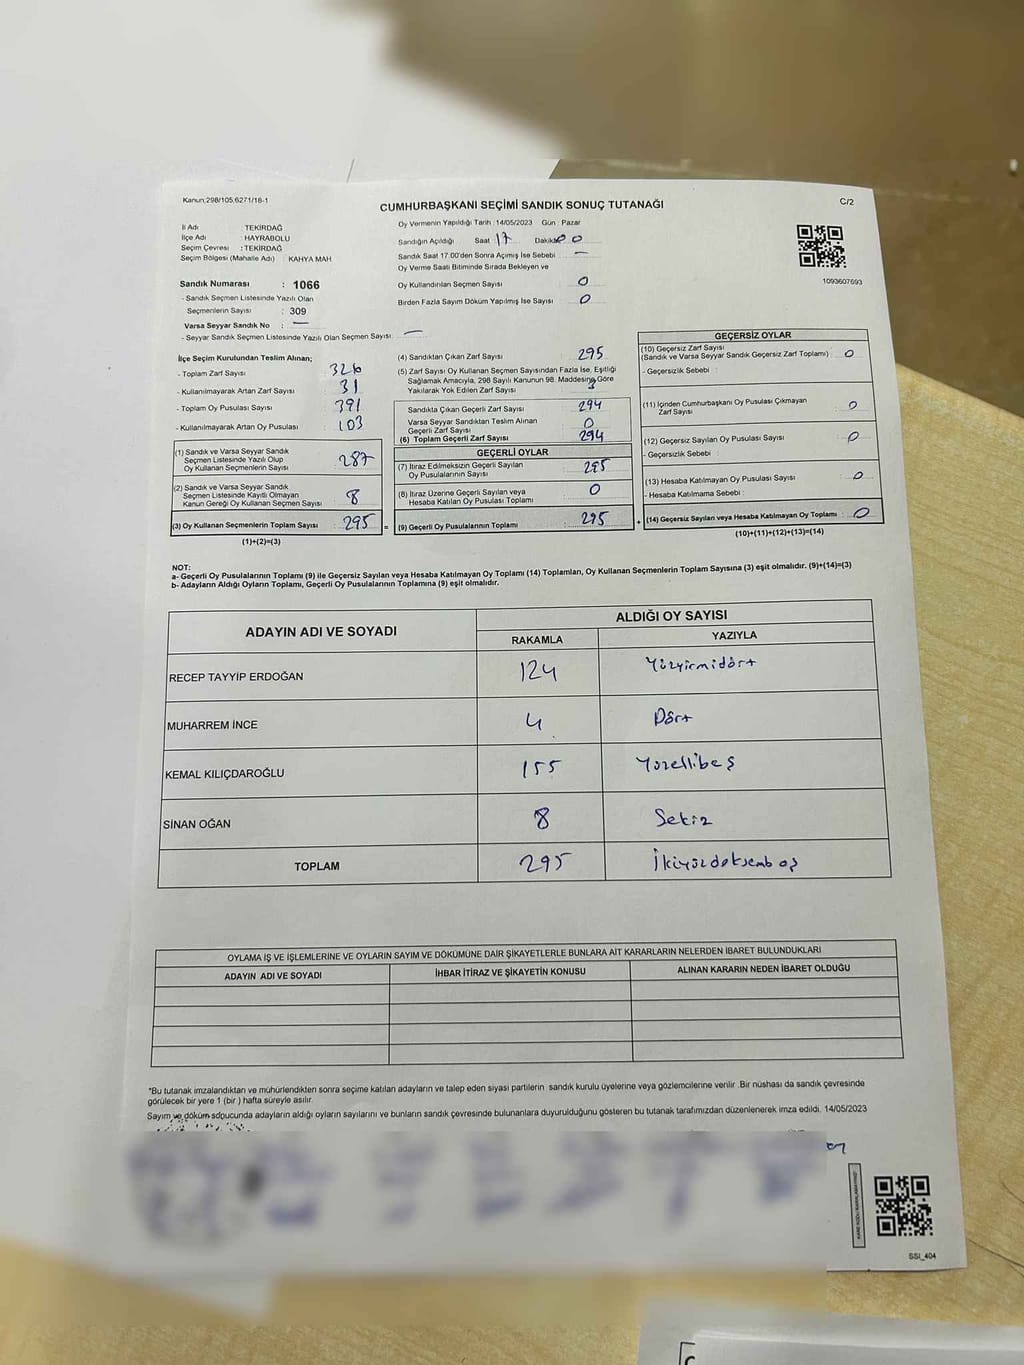 Kanun:298/105,6271/18-1
CUMHURBAŞKANI SEÇİMİ SANDIK SONUÇ TUTANAĞI
C/2
İl Adı : TEKİRDAĞ
İlçe Adı : HAYRABOLU
Seçim Çevresi : TEKİRDAĞ
Seçim Bölgesi (Mahalle Adı) : KAHYA MAH
Sandık Numarası : 1066
- Sandık Seçmen Listesinde Yazılı Olan
Seçmenlerin Sayısı : 309
Varsa Seyyar Sandık No : —
- Seyyar Sandık Seçmen Listesinde Yazılı Olan Seçmen Sayısı : —
Oy Vermenin Yapıldığı Tarih : 14/05/2023 Gün : Pazar
Sandığın Açıldığı Saat 17 Dakika 00
Sandık Saat 17.00'den Sonra Açımış İse Sebebi : —
Oy Verme Saati Bitiminde Sırada Bekleyen ve
Oy Kullandırılan Seçmen Sayısı : 0
Birden Fazla Sayım Döküm Yapılmış İse Sayısı : 0
1093607693
İlçe Seçim Kurulundan Teslim Alınan;
- Toplam Zarf Sayısı : 326
- Kullanılmayarak Artan Zarf Sayısı : 31
- Toplam Oy Pusulası Sayısı : 391
- Kullanılmayarak Artan Oy Pusulası : 103
(1) Sandık ve Varsa Seyyar Sandık
Seçmen Listesinde Yazılı Olup
Oy Kullanan Seçmenlerin Sayısı : 287
(2) Sandık ve Varsa Seyyar Sandık
Seçmen Listesinde Kayıtlı Olmayan
Kanun Gereği Oy Kullanan Seçmen Sayısı : 8
(3) Oy Kullanan Seçmenlerin Toplam Sayısı : 295 =
(1)+(2)=(3)
(4) Sandıktan Çıkan Zarf Sayısı : 295
(5) Zarf Sayısı Oy Kullanan Seçmen Sayısından Fazla İse, Eşitliği
Sağlamak Amacıyla, 298 Sayılı Kanunun 98. Maddesine Göre
Yakılarak Yok Edilen Zarf Sayısı :
Sandıkta Çıkan Geçerli Zarf Sayısı : 294
Varsa Seyyar Sandıktan Teslim Alınan
Geçerli Zarf Sayısı : 0
(6) Toplam Geçerli Zarf Sayısı : 294
GEÇERLİ OYLAR
(7) İtiraz Edilmeksizin Geçerli Sayılan
Oy Pusulalarının Sayısı : 295
(8) İtiraz Üzerine Geçerli Sayılan veya
Hesaba Katılan Oy Pusulası Toplamı : 0
(9) Geçerli Oy Pusulalarının Toplamı : 295 +
GEÇERSİZ OYLAR
(10) Geçersiz Zarf Sayısı
(Sandık ve Varsa Seyyar Sandık Geçersiz Zarf Toplamı) : 0
- Geçersizlik Sebebi :
(11) İçinden Cumhurbaşkanı Oy Pusulası Çıkmayan
Zarf Sayısı : 0
(12) Geçersiz Sayılan Oy Pusulası Sayısı : 0
- Geçersizlik Sebebi :
(13) Hesaba Katılmayan Oy Pusulası Sayısı : 0
- Hesaba Katılmama Sebebi :
(14) Geçersiz Sayılan veya Hesaba Katılmayan Oy Toplamı : 0
(10)+(11)+(12)+(13)=(14)
NOT:
a- Geçerli Oy Pusulalarının Toplamı (9) ile Geçersiz Sayılan veya Hesaba Katılmayan Oy Toplamı (14) Toplamları, Oy Kullanan Seçmenlerin Toplam Sayısına (3) eşit olmalıdır. (9)+(14)=(3)
b- Adayların Aldığı Oyların Toplamı, Geçerli Oy Pusulalarının Toplamına (9) eşit olmalıdır.
ADAYIN ADI VE SOYADI
ALDIĞI OY SAYISI
RAKAMLA YAZIYLA
RECEP TAYYİP ERDOĞAN 124 Yüzyirmidört
MUHARREM İNCE 4 Dört
KEMAL KILIÇDAROĞLU 155 Yüzellibeş
SİNAN OĞAN 8 Sekiz
TOPLAM 295
OYLAMA İŞ VE İŞLEMLERİNE VE OYLARIN SAYIM VE DÖKÜMÜNE DAİR ŞİKAYETLERLE BUNLARA AİT KARARLARIN NELERDEN İBARET BULUNDUKLARI
ADAYIN ADI VE SOYADI İHBAR İTİRAZ VE ŞİKAYETİN KONUSU ALINAN KARARIN NEDEN İBARET OLDUĞU
*Bu tutanak imzalandıktan ve mühürlendikten sonra seçime katılan adayların ve talep eden siyasi partilerin sandık kurulu üyelerine veya gözlemcilerine verilir .Bir nüshası da sandık çevresinde
görülecek bir yere 1 (bir ) hafta süreyle asılır.
Sayım ve döküm sonucunda adayların aldığı oyların sayılarını ve bunların sandık çevresinde bulunanlara duyurulduğunu gösteren bu tutanak tarafımızdan düzenlenerek imza edildi. 14/05/2023
SSI_404